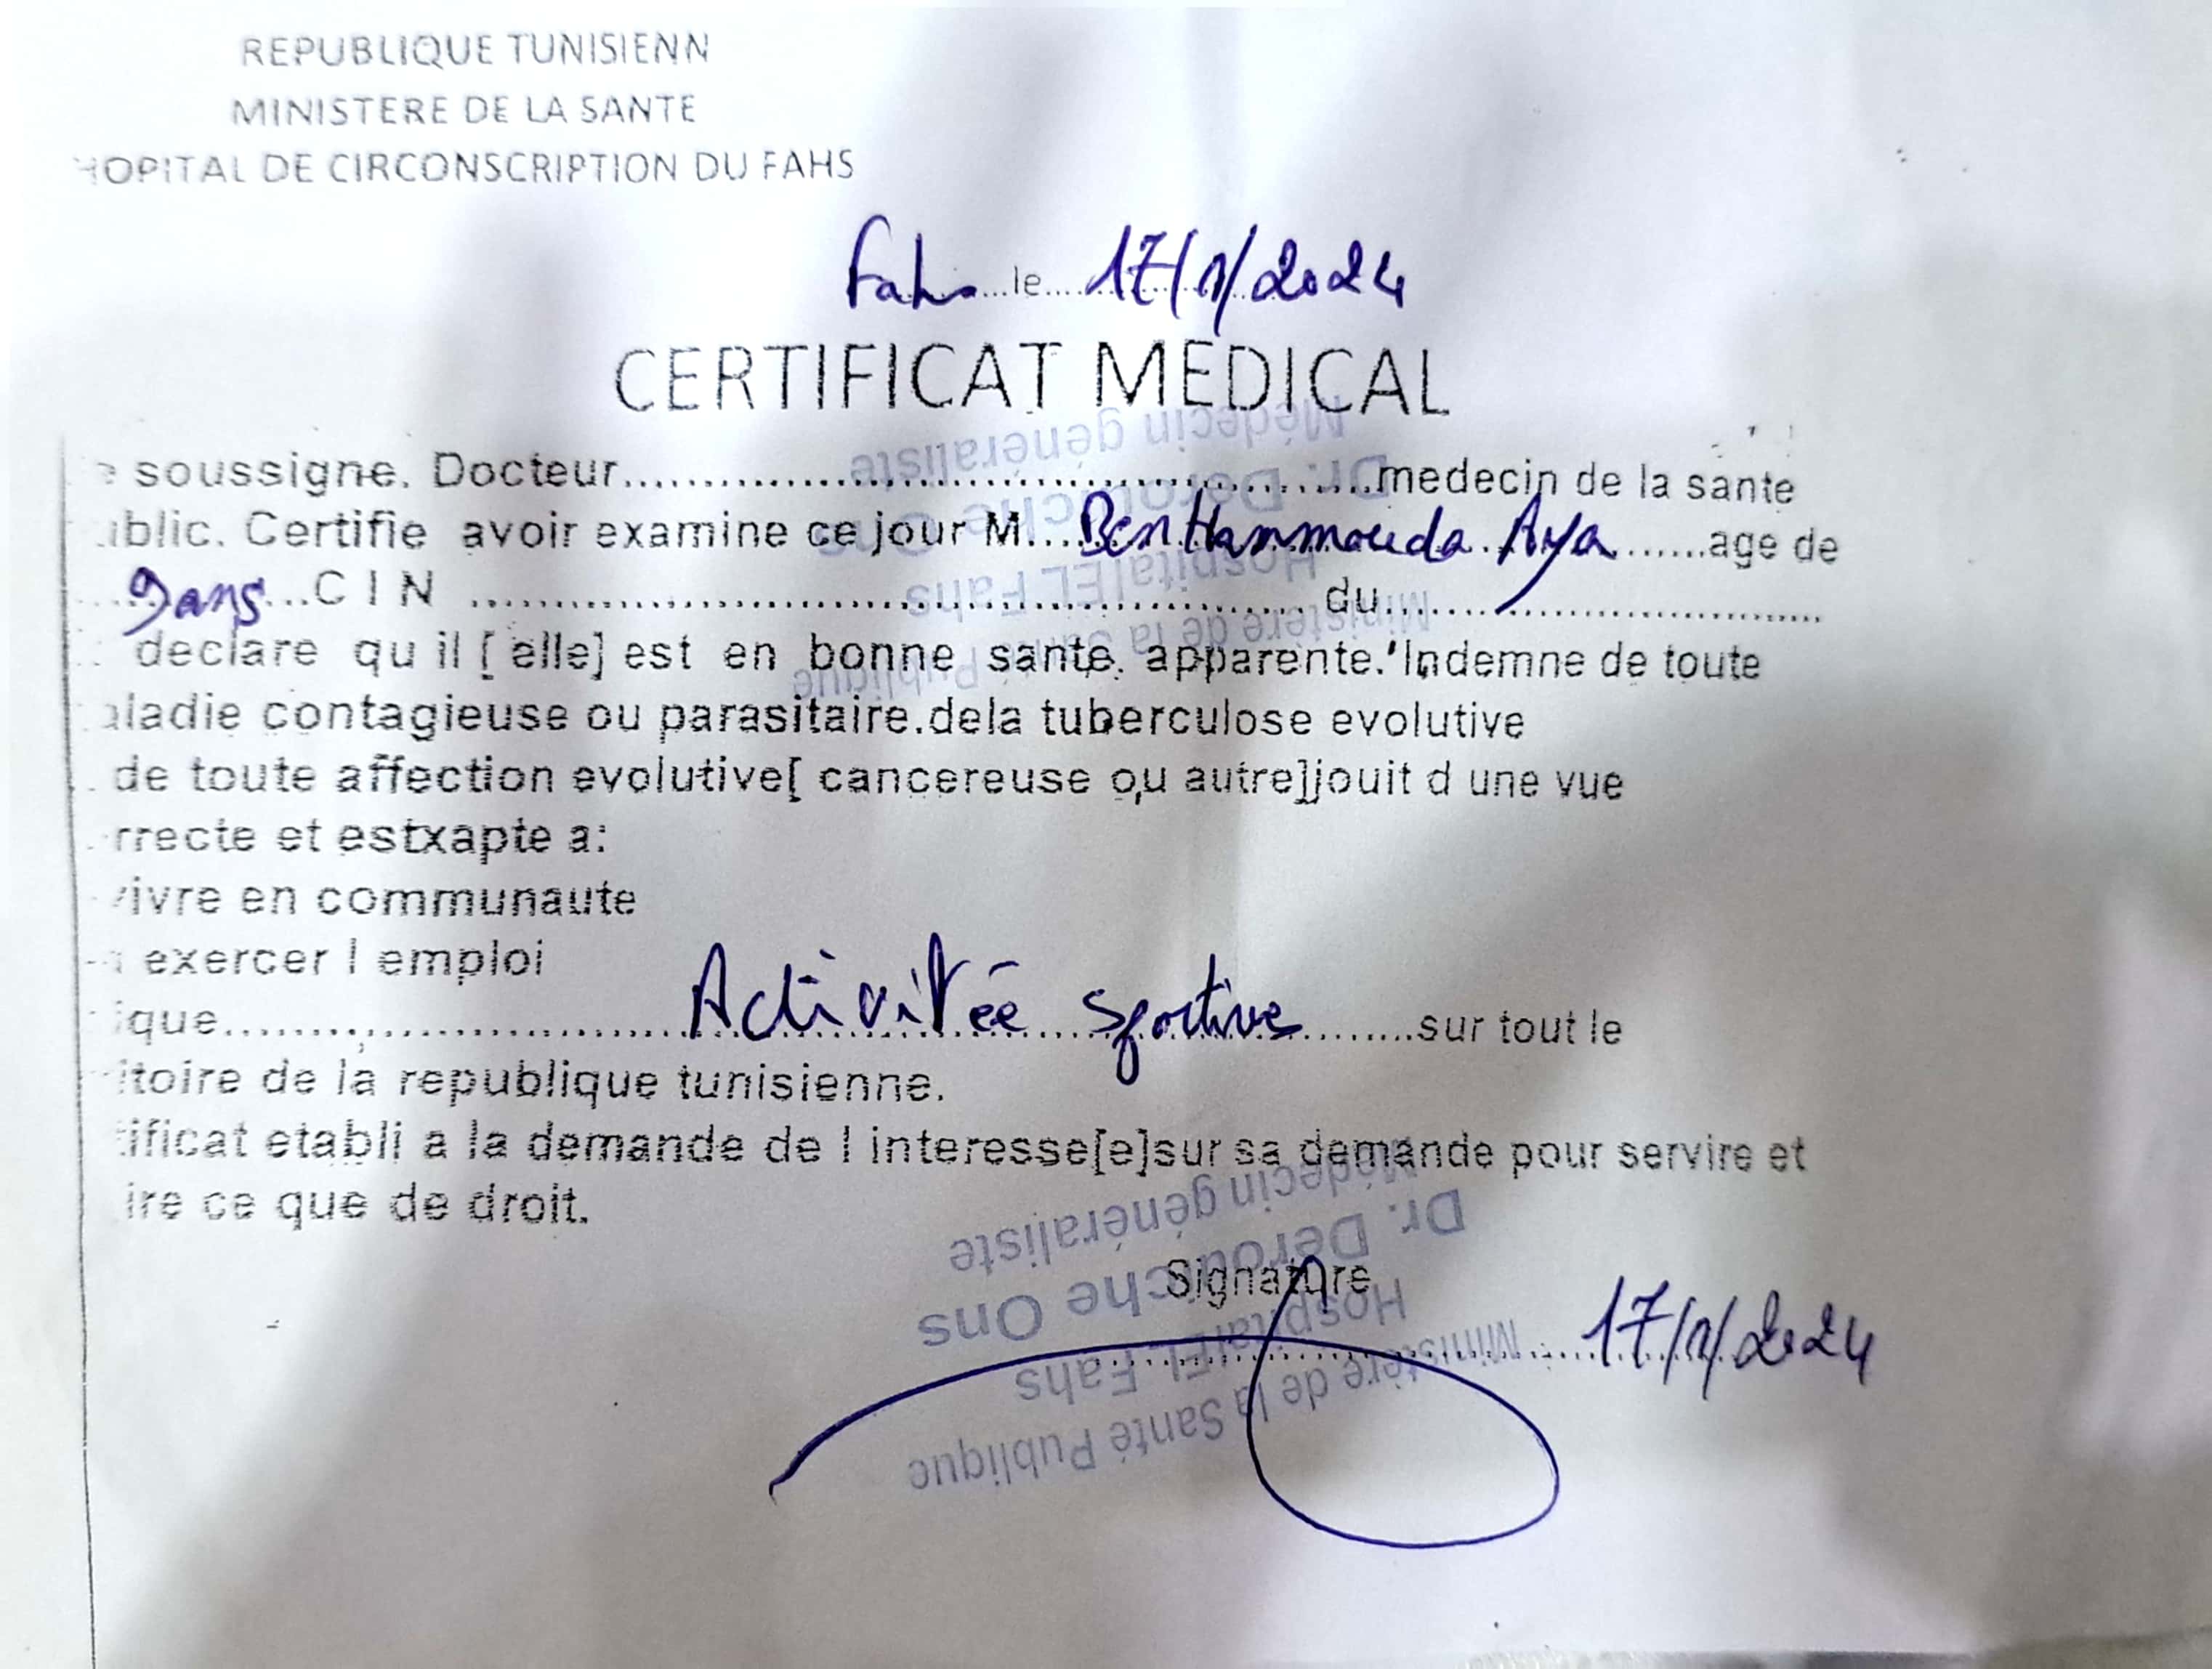 REPUBLIQUE TUNISIENN
MINISTERE DE LA SANTE
HOPITAL DE CIRCONSCRIPTION DU FAHS
Fahs le 17/1/2024
CERTIFICAT MEDICAL
e soussigne. Docteur medecin de la sante
ublic. Certifie avoir examine ce jour M. Ben Hammouda Aya age de
9ans C I N du
declare qu il [ elle] est en bonne sante. apparente. Indemne de toute
aladie contagieuse ou parasitaire.dela tuberculose evolutive
de toute affection evolutive[ cancereuse ou autre]jouit d une vue
rrecte et estxapte a:
vivre en communaute
a exercer l emploi
ique Activitée sportive sur tout le
itoire de la republique tunisienne.
tificat etabli a la demande de l interesse[e]sur sa demande pour servire et
ire ce que de droit.
Signature
17/1/2024
Ministère de la Santé Publique
Hospital EL Fahs
Dr. Derouiche Ons
Médecin généraliste
Ministère de la Santé Publique
Hospital EL Fahs
Dr. Derouiche Ons
Médecin généraliste